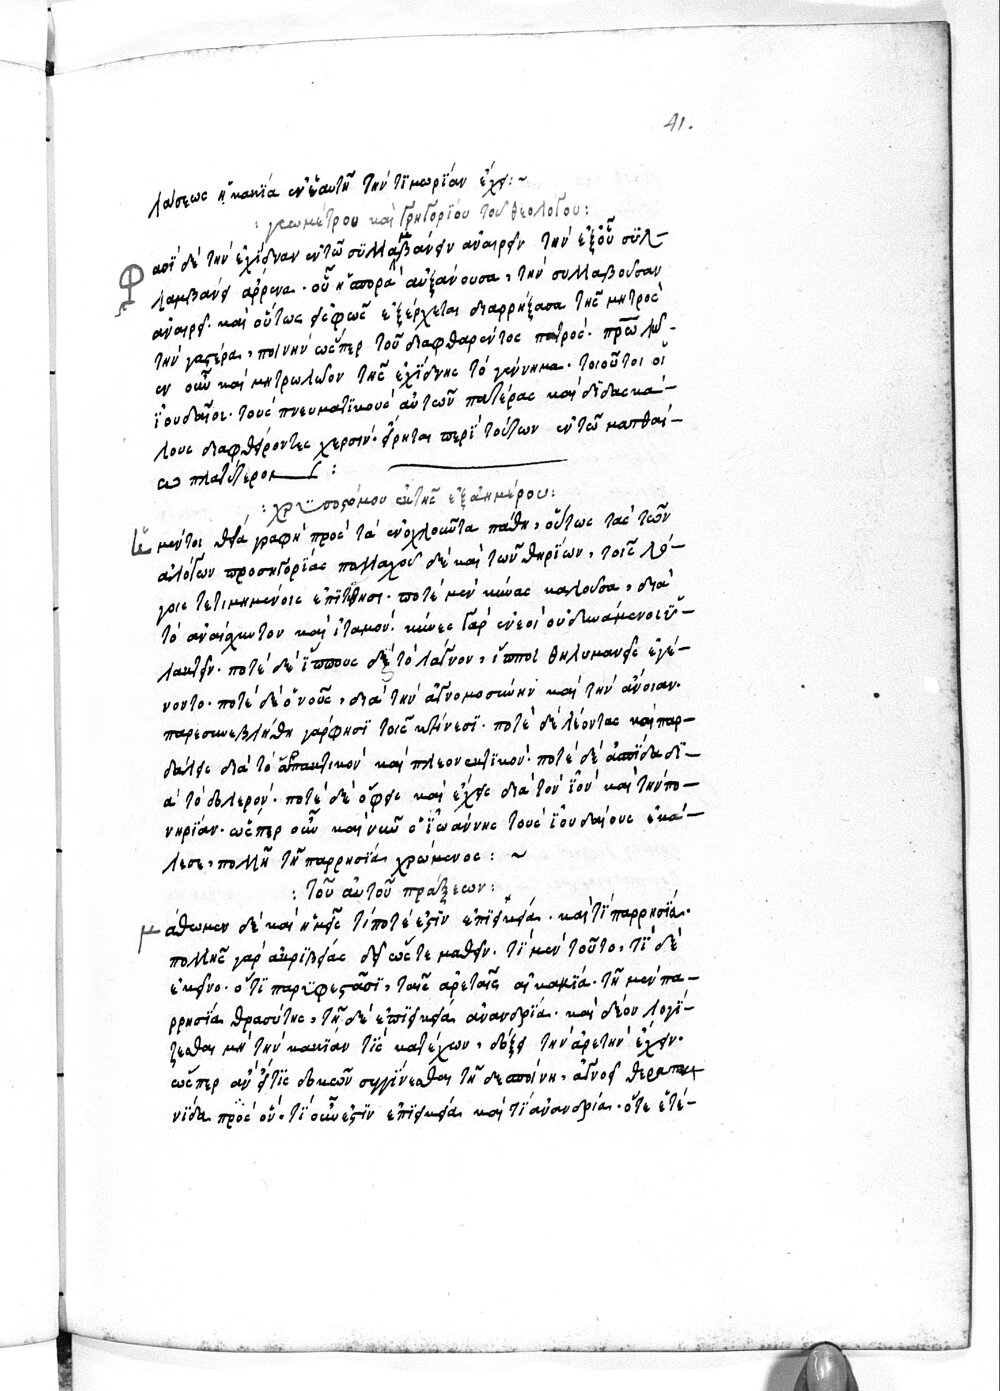 41.
λάσεως ἡ κακία ἐν ἑαυτῇ τὴν τϊμωρΐαν ἔχει: ~
: γεωμέτρου καὶ Γρηγορίου τοῦ θεολόγου:
Φασϊ δὲ τὴν ἔχιδναν ἐν τῶ συλλαμβάνειν ἀναιρεῖν τὴν ἐξ οὗ συλ-
λαμβάνει ἄρρενα· οὗ ἡ σπορὰ αὐξάνουσα, τὴν συλλαβοῦσαν
ἀναιρεῖ· καὶ οὕτως εἰς φῶς ἐξέρχεται διαρρήξασα τῆς μητρὸς
τὴν γαστέρα, ποινὴν ὥσπερ τοῦ διαφθαρέντος πατρός·
ἐν οὖν καὶ μητρωλῶον τῆς ἐχίδνης τὸ γέννημα· τοιοῦτοι οἱ
ἰουδαῖοι· τοὺς πνευματικοὺς αὐτῶν πατέρας καὶ διδασκά-
λους διαφθείροντες χερσίν· εἴρηται περὶ τούτων ἐν τῶ ματθαί-
ω πλατύτερον:
: χρυσοστόμου ἐκ τῆς ἑξαημέρου:
μέντοι θεία γραφὴ πρὸς τὰ ἐνοχλοῦντα πάθη, οὕτως τὰς τῶν
ἀλόγων προσηγορΐας πολλαχοῦ δὲ καὶ τῶν θηρίων, τοῖς λό-
γοις τετιμημένοις ἐπιτίθησι· ποτὲ μὲν κύνας καλοῦσα, διὰ
τὸ ἀναίσχυντον καὶ ἰταμόν· κύνες γὰρ ἐνεοὶ οὐ δυνάμενοι ὑ-
λακτεῖν· ποτὲ δὲ ἵππους διὰ τὸ λάγνον, ἵπποι θηλυμανεῖς ἐγέ-
νοντο· ποτὲ δὲ ὄνους, διὰ τὴν ἀγνομοσύνην καὶ τὴν ἄνοιαν·
παρεσυνεβλήθη γὰρ φησὶ τοῖς κτίνεσϊ· ποτὲ δὲ λέοντας καὶ παρ-
δάλεις διὰ τὸ ἁρπακτικὸν καὶ πλεονεκτικόν· ποτὲ δὲ ἀσπίδα δϊ-
ὰ τὸ δολερόν· ποτὲ δὲ ὄφεις καὶ ἔχεις διὰ τὸν ἰὸν καὶ τὴν πο-
νηρΐαν· ὥσπερ οὖν καὶ νῦν ὁ ἰωάννης τοὺς ἰουδαίους ἐκά-
λεσε, πολλῆ τῆ παρρησία χρώμενος: ~
: τοῦ αὐτοῦ πράξεων:
μάθωμεν δὲ καὶ ἡμεῖς τί ποτέ ἐστϊν ἐπϊείκεια· καὶ τί παρρησία·
πολλῆς γὰρ ἀκριβείας δεῖ ὥστε μαθεῖν· τί μὲν τοῦτο, τί δὲ
ἐκεῖνο· ὅτϊ παρϋφεστᾶσϊ, ταῖς ἀρεταῖς αἱ κακΐαι· τῆ μὲν πα-
ρρησία θρασύτης, τῆ δὲ ἐπϊεικεία ἀνανδρία· καὶ δέον λογί-
ζεσθαι μὴ τὴν κακΐαν τϊς κατέχων, δόξει τὴν ἀρετὴν ἔχειν·
ὥσπερ ἂν εἴ τϊς δοκῶν συγγΐνεσθαι τῆ δεσποίνη, ἀγνοεῖ θεραπαι-
νΐδα πρὸς ὅν· τί οὖν ἐστϊν ἐπϊείκεια καὶ τί ἀνανδρία· ὅτε ἑτέ-